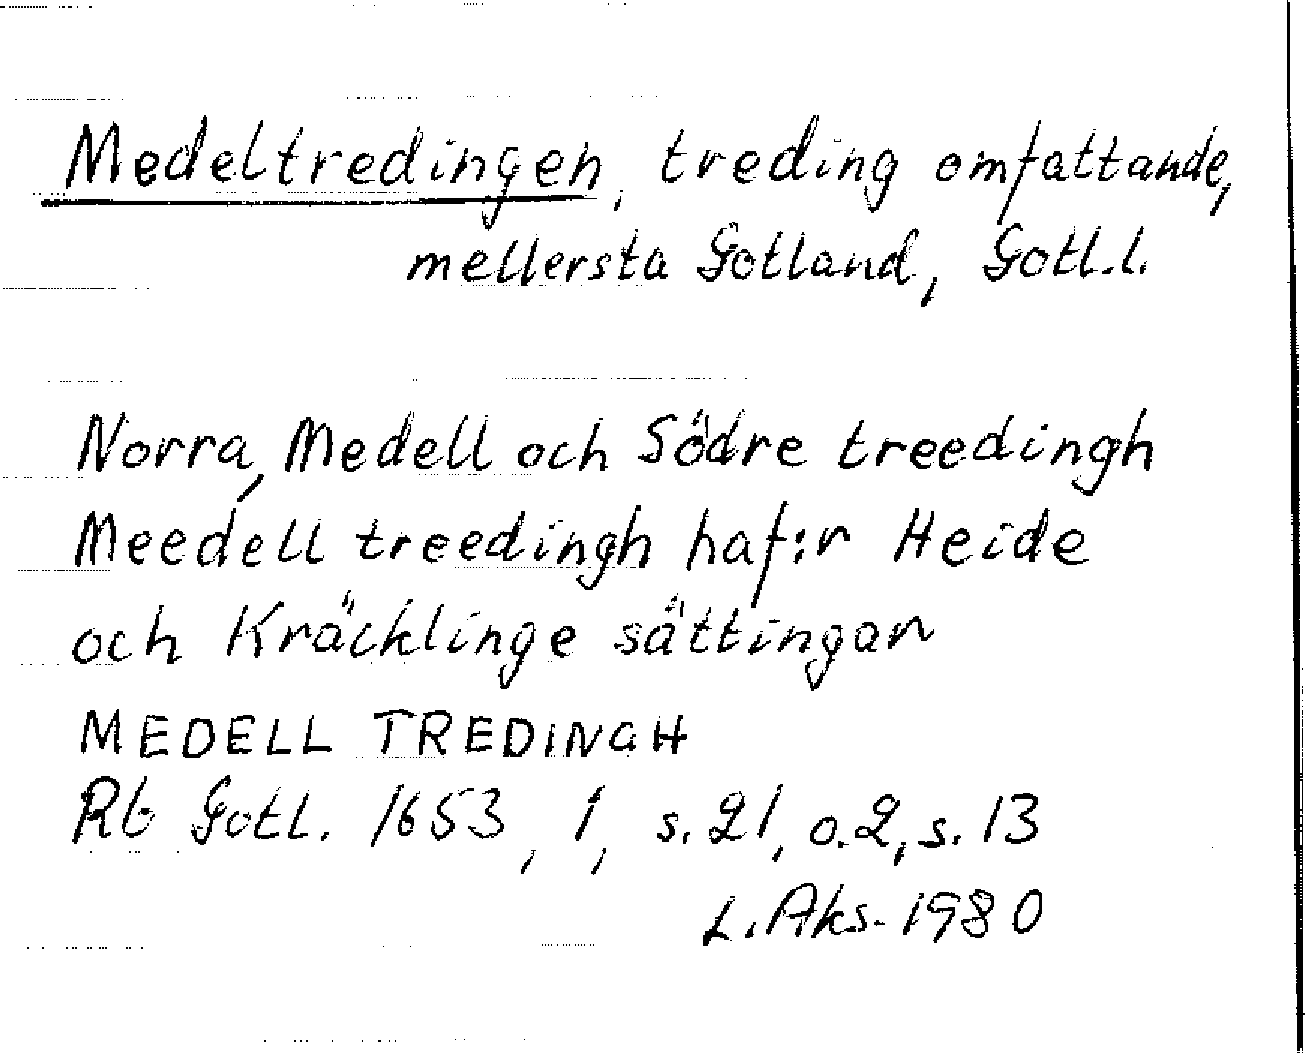 Medeltredingen, treding omfattande,
mellersta Gotland, Gotl.l.
Norra, Medell och Södre treedingh
Meedell treedingh haf:r Heide
och Kräcklinge sättingar
MEDELL TREDINGH
Rb Gotl. 1653, 1, s. 21, o. 2, s. 13
L. Aks. 1980